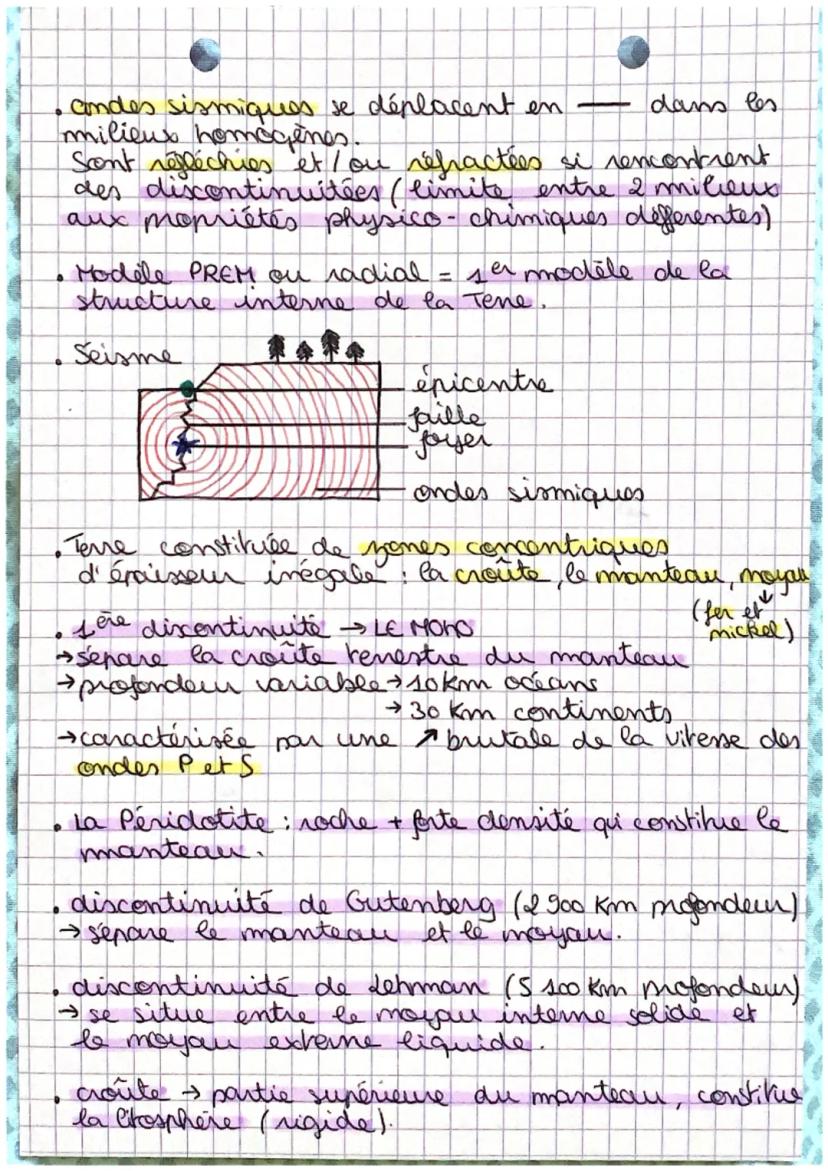 . ondes sismiques se déplacent en — dans les
milieux homogènes.
Sont réfléchies et/ou réfractées si rencontrent
des discontinuitées (limite entre 2 milieux
aux propriétés physico-chimiques différentes)
. Modèle PREM ou radial = 1er modèle de la
structure interne de la Terre.
. Séisme
épicentre
faille
foyer
ondes sismiques
. Terre constituée de zones concentriques
d'épaisseur inégale : la croûte, le manteau, noyau
(fer et
nickel)
. 1ère discontinuité → LE MOHO
→ sépare la croûte terrestre du manteau
→ profondeur variable → 10 km océans
→ 30 km continents
→ caractérisée par une ↗ brutale de la vitesse des
ondes P et S
. La Péridotite : roche + forte densité qui constitue le
manteau.
. discontinuité de Gutenberg (2 900 km profondeur)
→ sépare le manteau et le noyau.
. discontinuité de Lehman (5 100 km profondeur)
→ se situe entre le noyau interne solide et
le noyau externe liquide.
. croûte → partie supérieure du manteau, constitue
la litosphère (rigide).